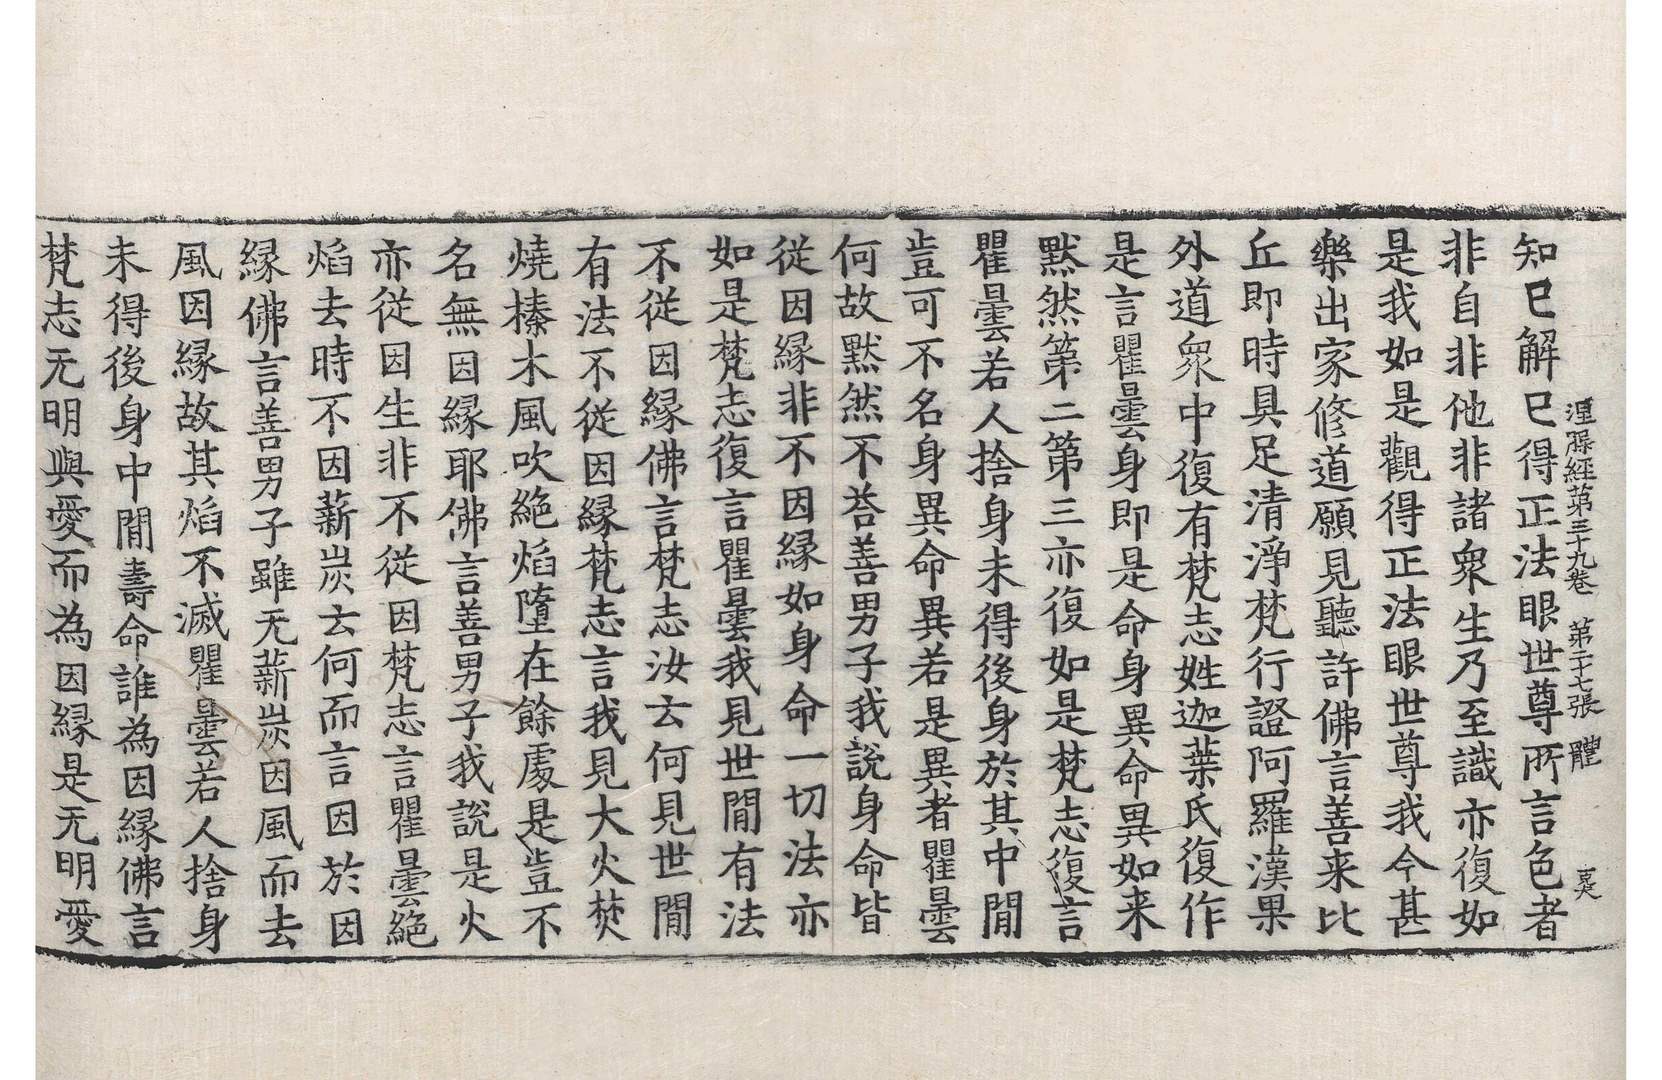 涅槃經第三十九卷 第二十七張 體
知已解已得正法眼世尊所言色者
非自非他非諸衆生乃至識亦復如
是我如是觀得正法眼世尊我今甚
樂出家修道願見聽許佛言善来比
丘即時具足清淨梵行證阿羅漢果
外道衆中復有梵志姓迦葉氏復作
是言瞿曇身即是命身異命異如来
默然第二第三亦復如是梵志復言
瞿曇若人捨身未得後身於其中閒
豈可不名身異命異若是異者瞿曇
何故默然不荅善男子我説身命皆
從因緣非不因緣如身命一切法亦
如是梵志復言瞿曇我見世閒有法
不從因緣佛言梵志汝云何見世閒
有法不從因緣梵志言我見大火焚
燒榛木風吹絶焰墮在餘處是豈不
名無因緣耶佛言善男子我説是火
亦從因生非不從因梵志言瞿曇絶
焰去時不因薪炭云何而言因於因
緣佛言善男子雖无薪炭因風而去
風因緣故其焰不滅瞿曇若人捨身
未得後身中閒壽命誰為因緣佛言
梵志无明與愛而為因緣是无明愛